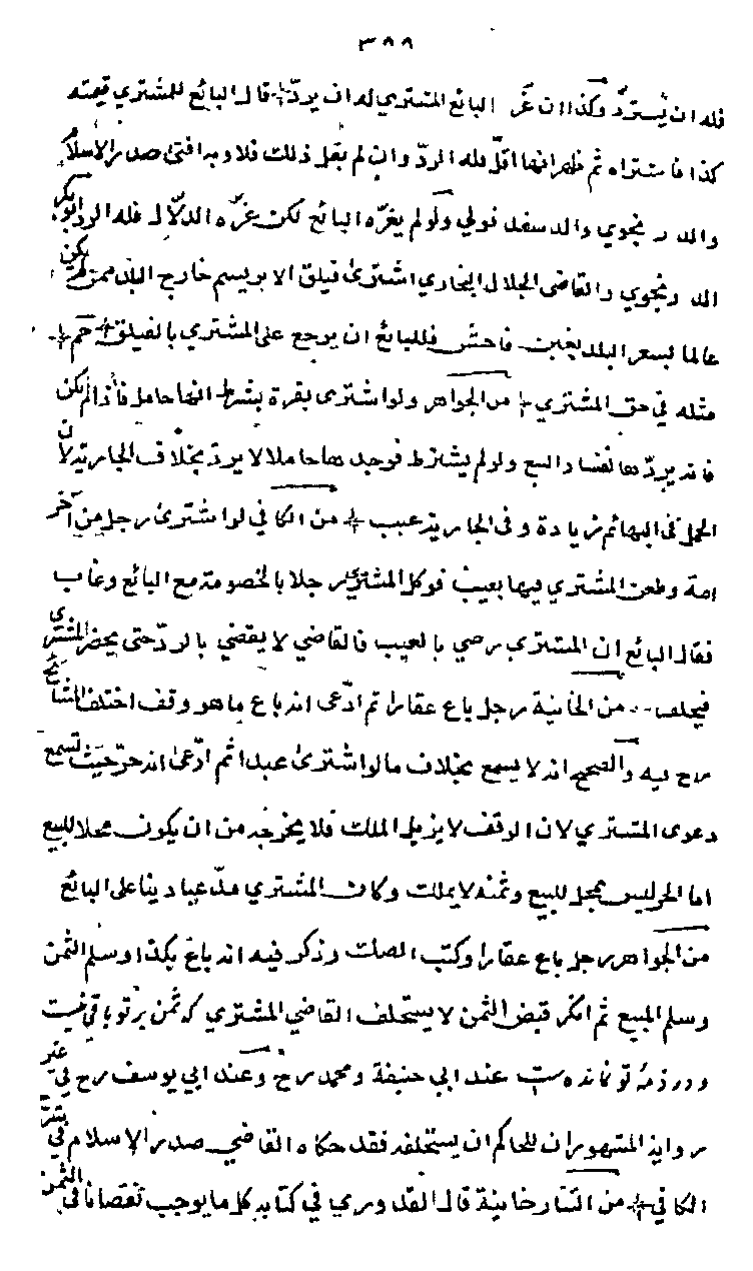 ٣٨٨
فله ان يسترد وكذا ان غر البائع المشتري له ان يرد قال البائع للمشتري قيمته
كذا فاشتراه ثم ظهر انها اقل فله الرد وان لم يقل ذلك فلا وبه افتى صدر الاسلام
والد سفلد فولي ولو لم يغره البائع لكن غره الدلال فله الرد ابو بكر
والقاضى الجلال البخاري اشترى فيلق الابريسم خارج البلد ممن لم يكن
عالما بسعر البلد بغبن فاحش فللبائع ان يرجع على المشتري بالفيلق
مثله في حق المشتري من الجواهر ولو اشترى بقرة بشرط انها حامل فاذا لم يكن
فانه يردها لفساد البيع ولو لم يشترط فوجدها حاملا لا يرد بخلاف الجارية لان
الحمل فى البهائم زيادة وفى الجارية عيب من الكافي لو اشترى رجل من آخر
امة وطعن المشتري فيها بعيب فوكل المشتري رجلا بالخصومة مع البائع وغاب
فقال البائع ان المشتري رضي بالعيب فالقاضي لا يقضي بالرد حتى يحضر المشتري
فيحلف من الخانية رجل باع عقارا ثم ادعى انه باع ما هو وقف اختلف المشائخ
رح فيه والصحيح انه لا يسمع بخلاف ما لو اشترى عبدا ثم ادعى انه حر حيث تسمع
دعوى المشتري لان الوقف لا يزيل الملك فلا يخرجه من ان يكون محلا للبيع
اما الحر ليس بمحل للبيع وثمنه لا يملك وكان المشتري مدعيا دينا على البائع
من الجواهر رجل باع عقارا وكتب الصك وذكر فيه انه باع بكذا وسلم الثمن
وسلم المبيع ثم انكر قبض الثمن لا يستحلف القاضي المشتري كه ثمن بر تو باقي نيست
ودر ذمهٔ تو نمانده ست عند ابي حنيفة ومحمد رح وعند ابي يوسف رح في غير
رواية المشهور ان للحاكم ان يستحلفه فقد حكاه القاضي صدر الاسلام في
الكافي من التتارخانية قال القدوري في كتابه كل ما يوجب نقصانا في الثمن